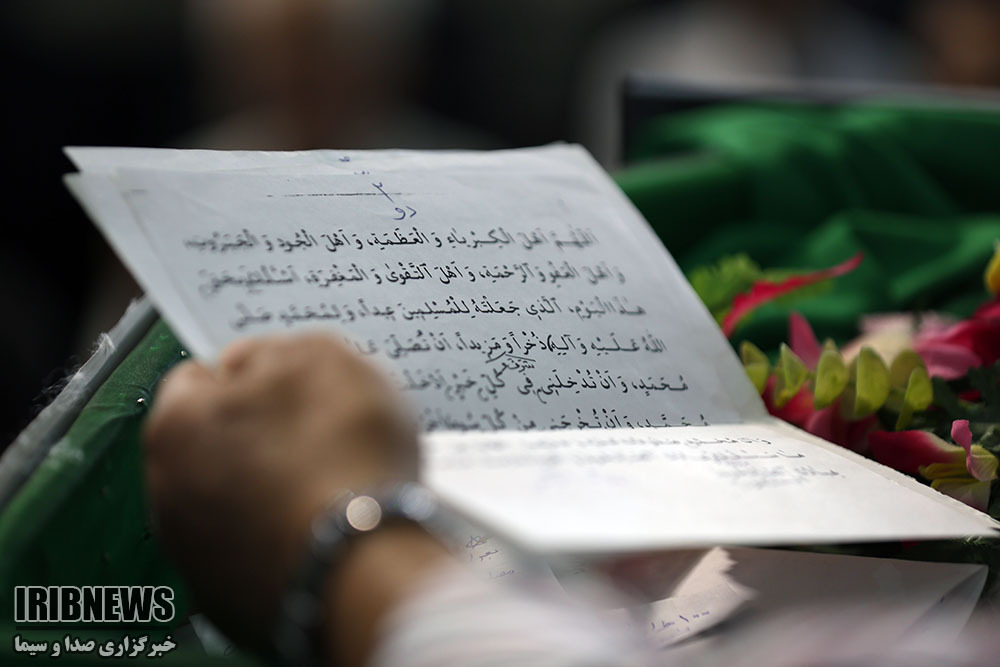 ۲
دو
اَللّهُمَّ اَهْلَ الْكِبْرِياءِ وَ الْعَظَمَةِ، وَ اَهْلَ الْجُودِ وَ الْجَبَرُوتِ،
وَ اَهْلَ الْعَفْوِ وَ الرَّحْمَةِ، وَ اَهْلَ التَّقْوىٰ وَ الْمَغْفِرَةِ، اَسْئَلُكَ بِحَقِّ
هذَا الْيَوْمِ، اَلَّذى جَعَلْتَهُ لِلْمُسْلِمينَ عِيداً، وَ لِمُحَمَّدٍ صَلَّى
اللهُ عَلَيْهِ وَ آلِهِ) ذُخْراً وَ مَزيداً، اَنْ تُصَلِّىَ
شَرَفاً
مُحَمَّدٍ، وَ اَنْ تُدْخِلَنى فى كُلِّ خَيْرٍ اَدْخَلْتَ
مُحَمَّدٍ، وَ اَنْ تُخْرِجَنى مِنْ كُلِّ سُوءٍ
IRIBNEWS
خبرگزاری صدا و سیما